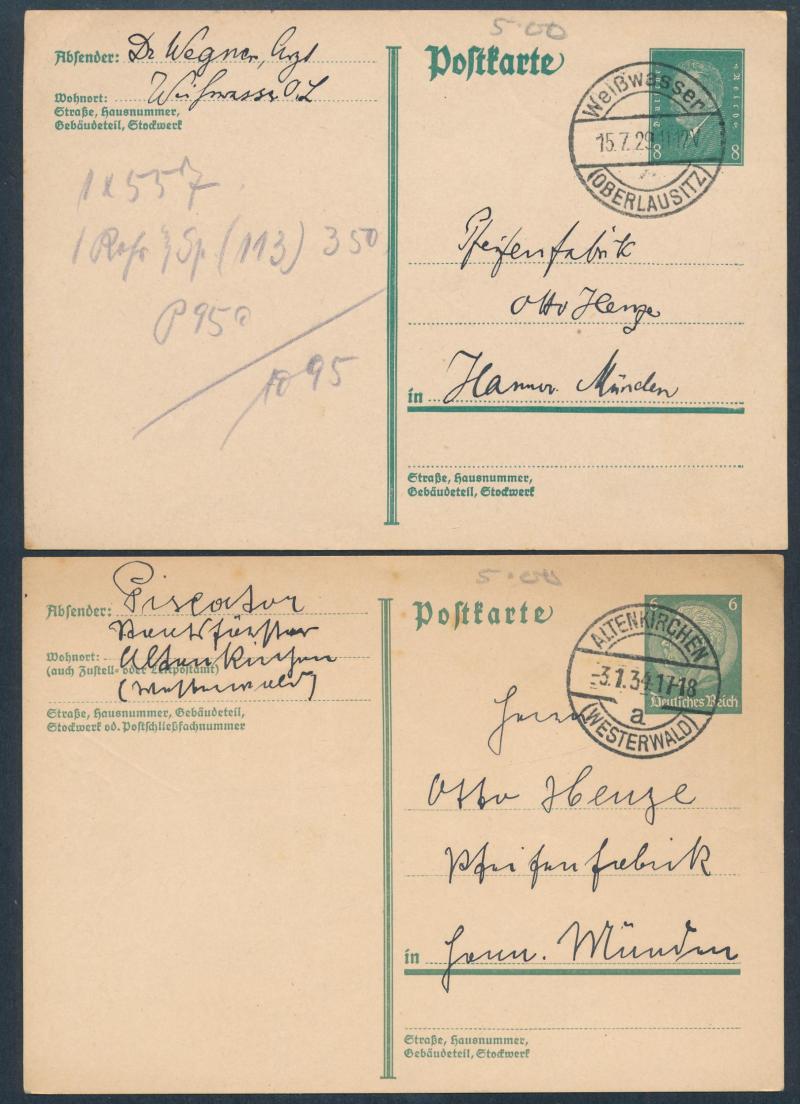 5.00
Absender: Dr Wegner, Arzt
Wohnort: Weißwasser O.L
Straße, Hausnummer,
Gebäudeteil, Stockwerk
1 x 557
1 Rohr Sp (113) 350
P 950
95
Postkarte
8 8
Weißwasser
15.7.29.11-12V
(OBERLAUSITZ)
Pfeifenfabrik
Otto Henze
in Hannov. Münden
Straße, Hausnummer,
Gebäudeteil, Stockwerk
5.00
Absender: Piscator
Wohnort: Altenkirchen
(auch Zustell- oder Leitpostamt)
(Westerwald)
Straße, Hausnummer, Gebäudeteil,
Stockwerk od. Postschließfachnummer
Postkarte
6 6
Deutsches Reich
ALTENKIRCHEN
-3.1.34.17-18
a
(WESTERWALD)
Herrn
Otto Henze
Pfeifenfabrik
in Hann. Münden
Straße, Hausnummer,
Gebäudeteil, Stockwerk